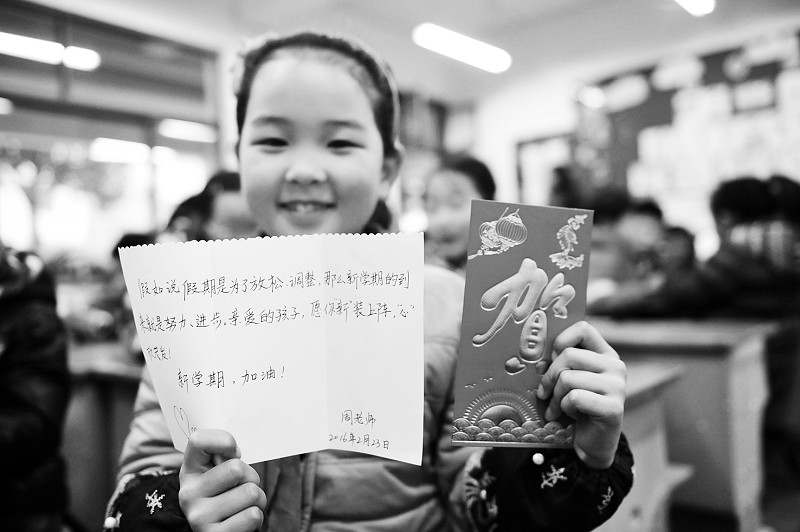 假如说假期是为了放松、调整,那么新学期的到
来就是努力、进步。亲爱的孩子,愿你新"装上阵,"心"
所美好!
新学期,加油!
周老师
2016年2月23日
贺